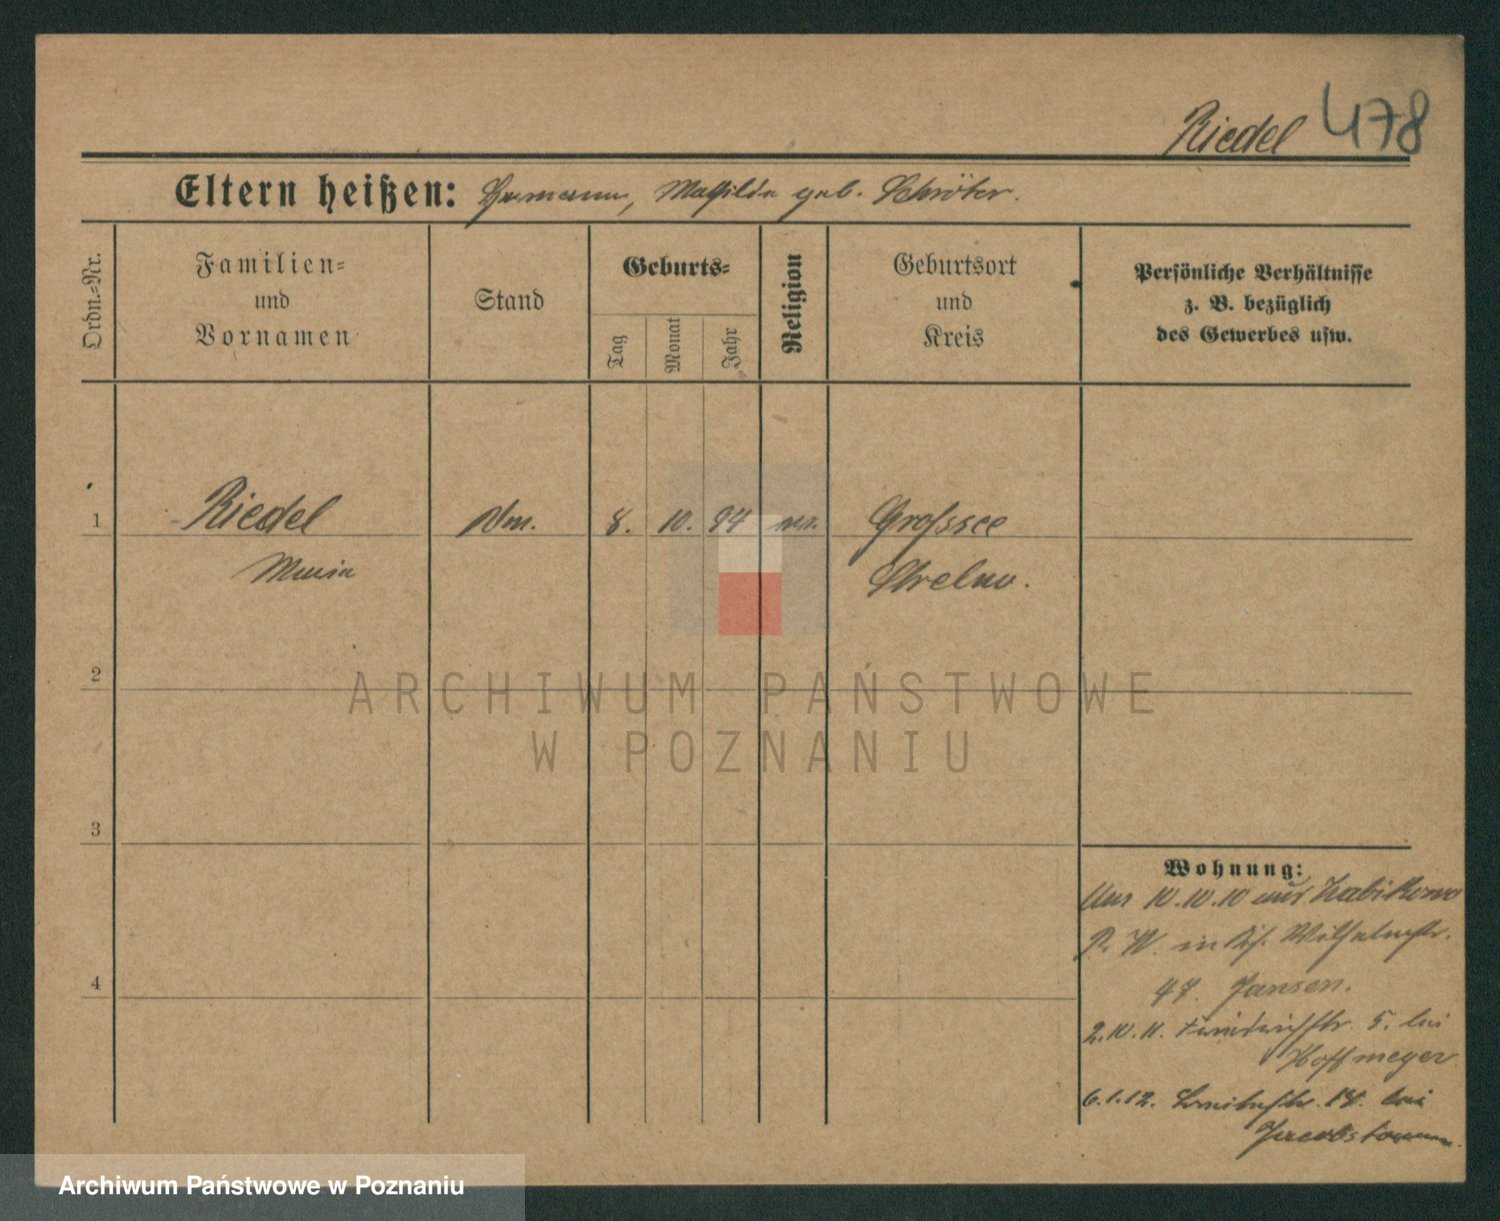 Riedel 478
Eltern heißen: Hermann, Mathilde geb. Schröter.
Ordn.=Nr.
Familien=
und
Vornamen
Stand
Geburts=
Tag
Monat
Jahr
Religion
Geburtsort
und
Kreis
Persönliche Verhältnisse
z. B. bezüglich
des Gewerbes usw.
1 Riedel 8. 10. 94 Grossee
Maria Strelno.
2
ARCHIWUM PAŃSTWOWE
W POZNANIU
3
4
Wohnung:
10.10.10 aus Żabikowo
P. W. in Wilhelmstr.
47. Jansen.
2.10.11. Friedrichstr. 5. bei
Hoffmeyer
6.1.12. Breitestr. 14. bei
Archiwum Państwowe w Poznaniu